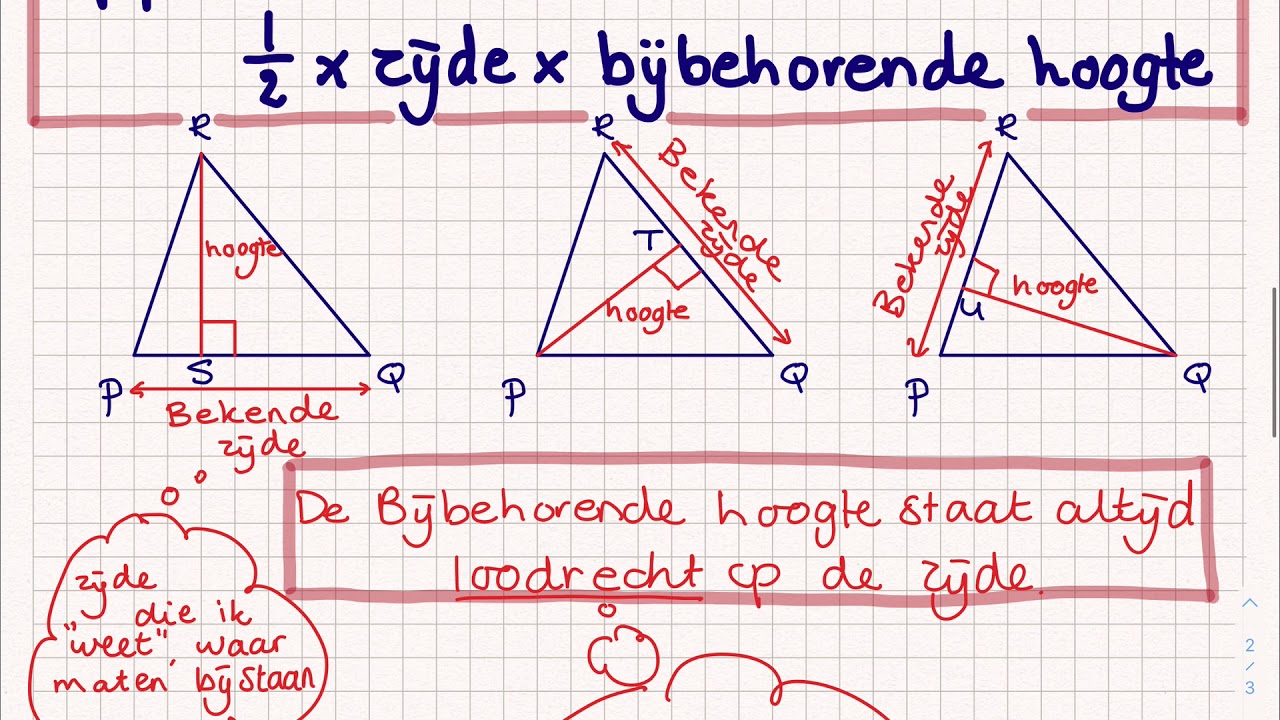 1/2 x zijde x bijbehorende hoogte
R
hoogte
S
P
Q
Bekende
zijde
R
Bekende
zijde
T
hoogte
P
Q
R
Bekende
zijde
hoogte
U
P
Q
De Bijbehorende hoogte staat altijd
loodrecht op de zijde.
zijde
die ik
"weet", waar
maten bijstaan
2
/
3